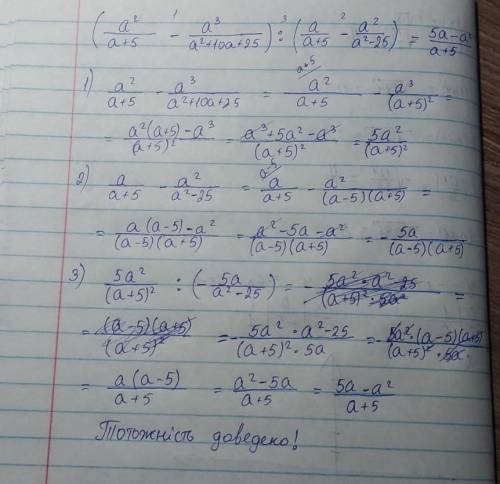 (a²/(a+5) - a³/(a²+10a+25)) : (a/(a+5) - a²/(a²-25)) = (5a-a²)/(a+5)
1) a²/(a+5) - a³/(a²+10a+25) = a²/(a+5) - a³/(a+5)² =
= (a²(a+5)-a³)/(a+5)² = (a³+5a²-a³)/(a+5)² = 5a²/(a+5)²
2) a/(a+5) - a²/(a²-25) = a/(a+5) - a²/((a-5)(a+5)) =
= (a(a-5)-a²)/((a-5)(a+5)) = (a²-5a-a²)/((a-5)(a+5)) = -5a/((a-5)(a+5))
3) 5a²/(a+5)² : (-5a/(a²-25)) =
= -(5a²·a²-25)/((a+5)²·5a) = -(5a²·(a-5)(a+5))/((a+5)²·5a)
= a(a-5)/(a+5) = (a²-5a)/(a+5) = (5a-a²)/(a+5)
Тотожність доведено!